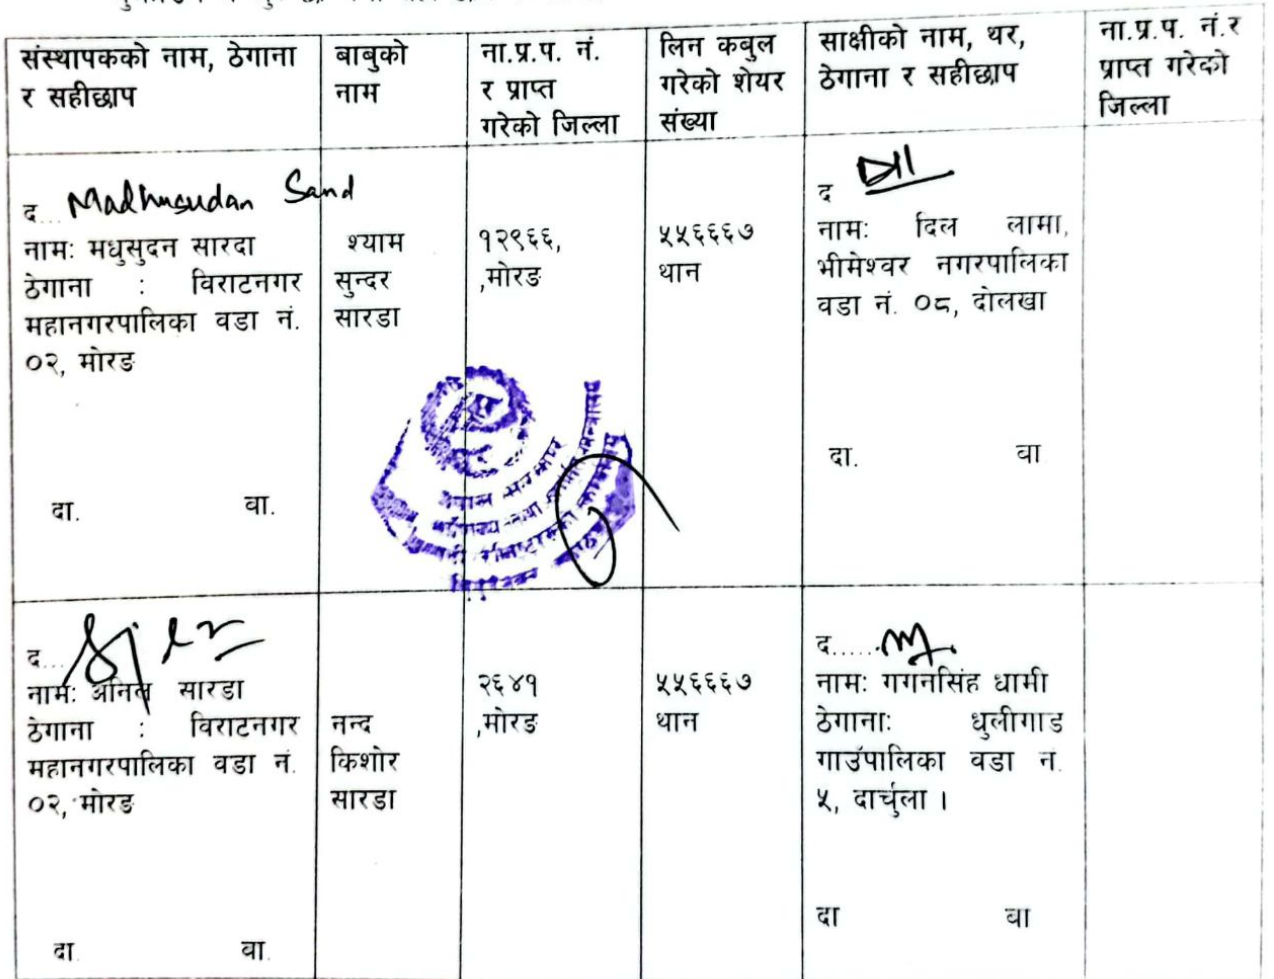 संस्थापकको नाम, ठेगाना
र सहीछाप
बाबुको
नाम
ना.प्र.प. नं.
र प्राप्त
गरेको जिल्ला
लिन कबुल
गरेको शेयर
संख्या
साक्षीको नाम, थर,
ठेगाना र सहीछाप
ना.प्र.प. नं.र
प्राप्त गरेको
जिल्ला
द... Madhusudan
नामः मधुसुदन सारदा
ठेगाना : विराटनगर
महानगरपालिका वडा नं.
०२, मोरङ
दा. वा.
श्याम
सुन्दर
सारडा
१२९६६,
,मोरङ
५५६६६७
थान
द
नामः दिल लामा,
भीमेश्वर नगरपालिका
वडा नं. ०८, दोलखा
दा. वा
द...
नामः अनिल सारडा
ठेगाना : विराटनगर
महानगरपालिका वडा नं.
०२, मोरङ
दा. वा.
नन्द
किशोर
सारडा
२६४१
,मोरङ
५५६६६७
थान
द......
नामः गगनसिंह धामी
ठेगानाः धुलीगाड
गाउँपालिका वडा नं.
५, दार्चुला ।
दा वा